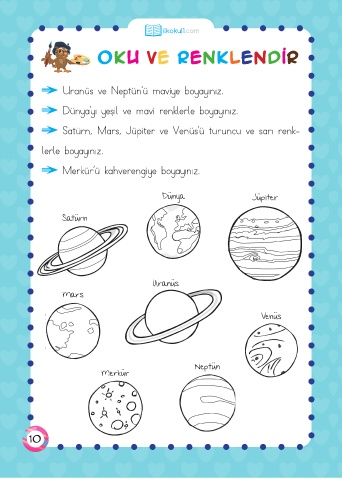 ilkokul1.com
OKU VE RENKLENDİR
Uranüs ve Neptün'ü maviye boyayınız.
Dünya'yı yeşil ve mavi renklerle boyayınız.
Satürn, Mars, Jüpiter ve Venüs'ü turuncu ve sarı renk-
lerle boyayınız.
Merkür'ü kahverengiye boyayınız.
Dünya
Jüpiter
Satürn
Uranüs
Mars
Venüs
Neptün
Merkür
10